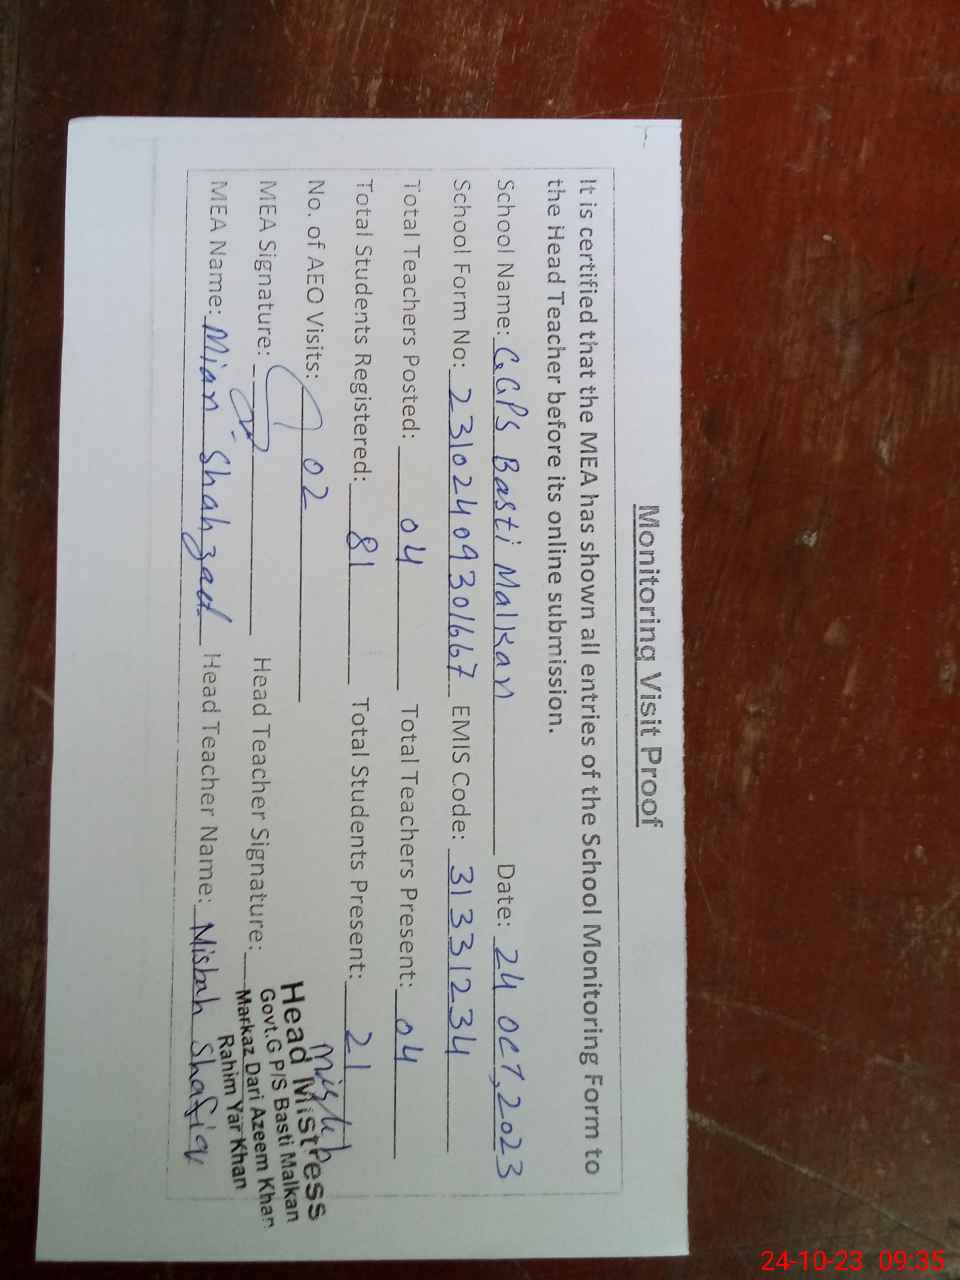 Monitoring Visit Proof
It is certified that the MEA has shown all entries of the School Monitoring Form to
the Head Teacher before its online submission.
School Name: GGPS Basti Malkan Date: 24 OCT, 2023
School Form No: 231024093016 67 EMIS Code: 31331234
Total Teachers Posted: 04 Total Teachers Present: 04
Total Students Registered: 81 Total Students Present: 21
No. of AEO Visits: 02
MEA Signature: Head Teacher Signature: Misbah
Head Mistress
Govt.G P/S Basti Malkan
Markaz Dari Azeem Khan
Rahim Yar Khan
MEA Name: Mian Shahzad Head Teacher Name: Misbah Shafiq
24-10-23 09:35